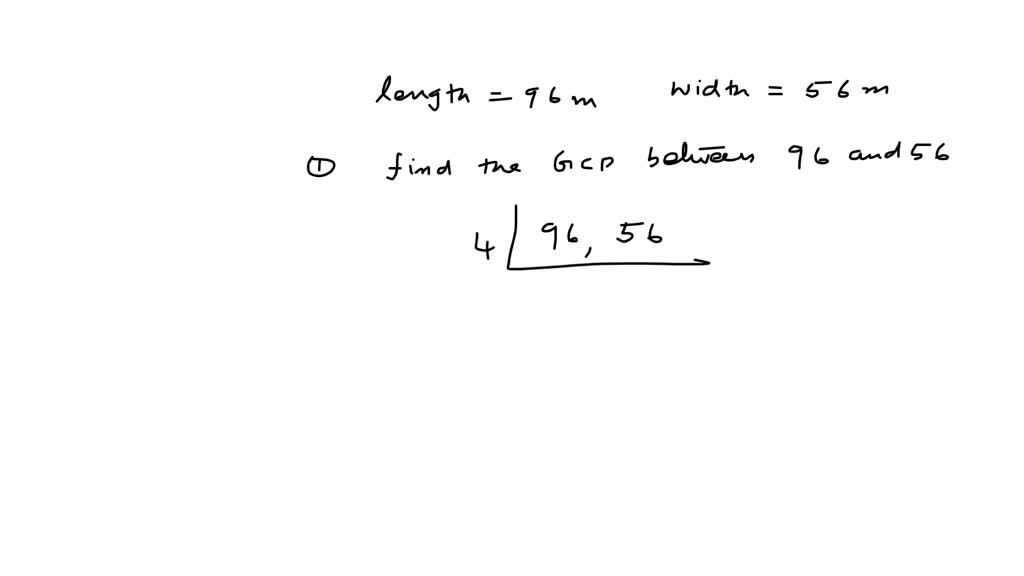 length = 96 m width = 56 m
① find the GCD between 96 and 56
4 96, 56